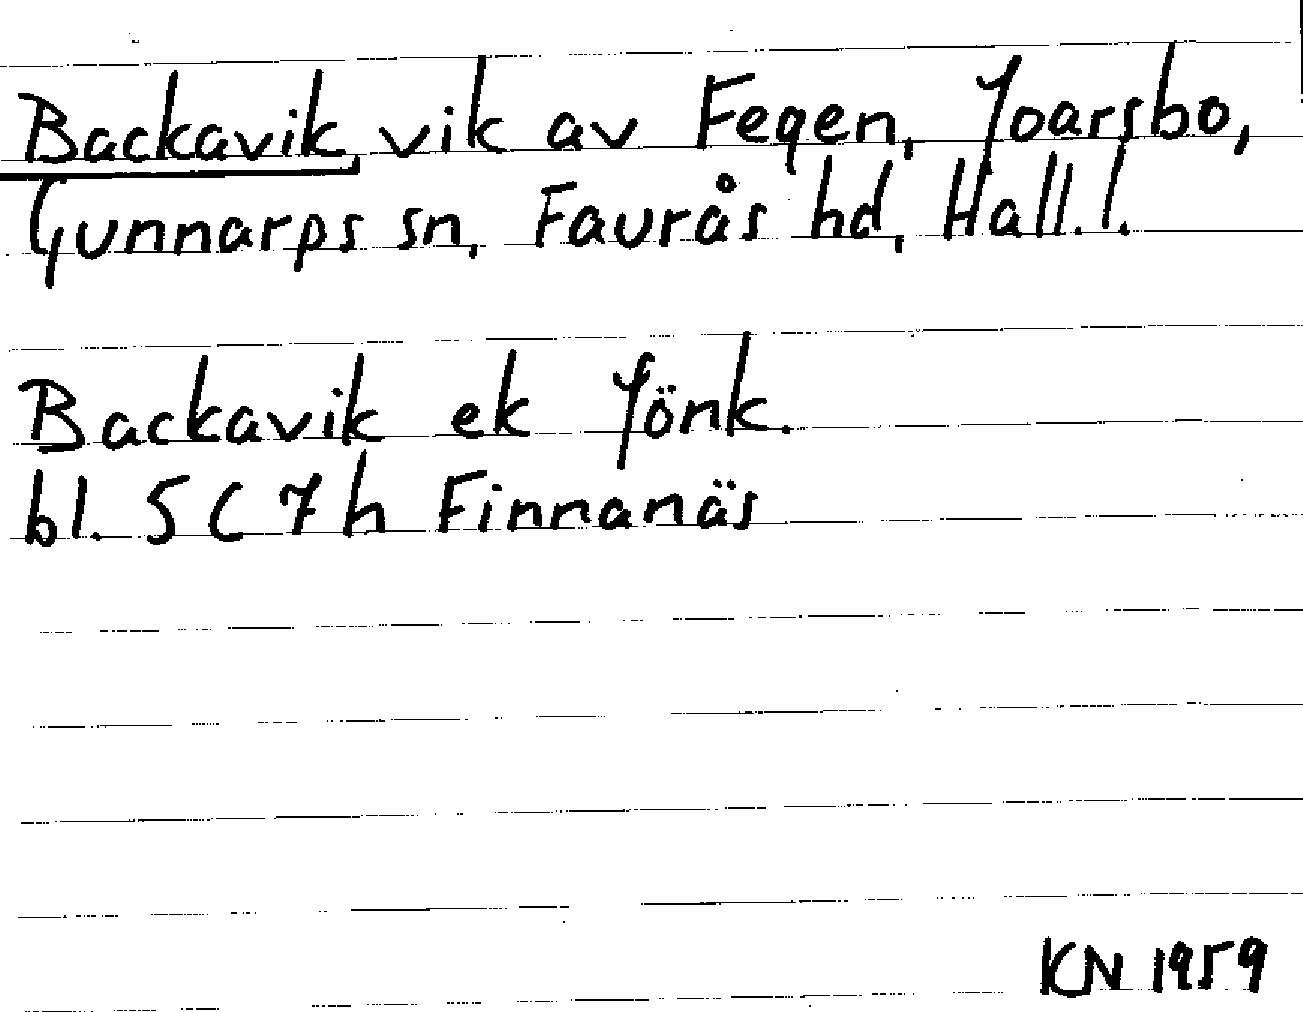 Backavik, vik av Fegen, Joarsbo,
Gunnarps sn, Faurås hd, Hall.l.
Backavik ek Jönk.
bl. 5 C 7 h Finnanäs
KN 1959